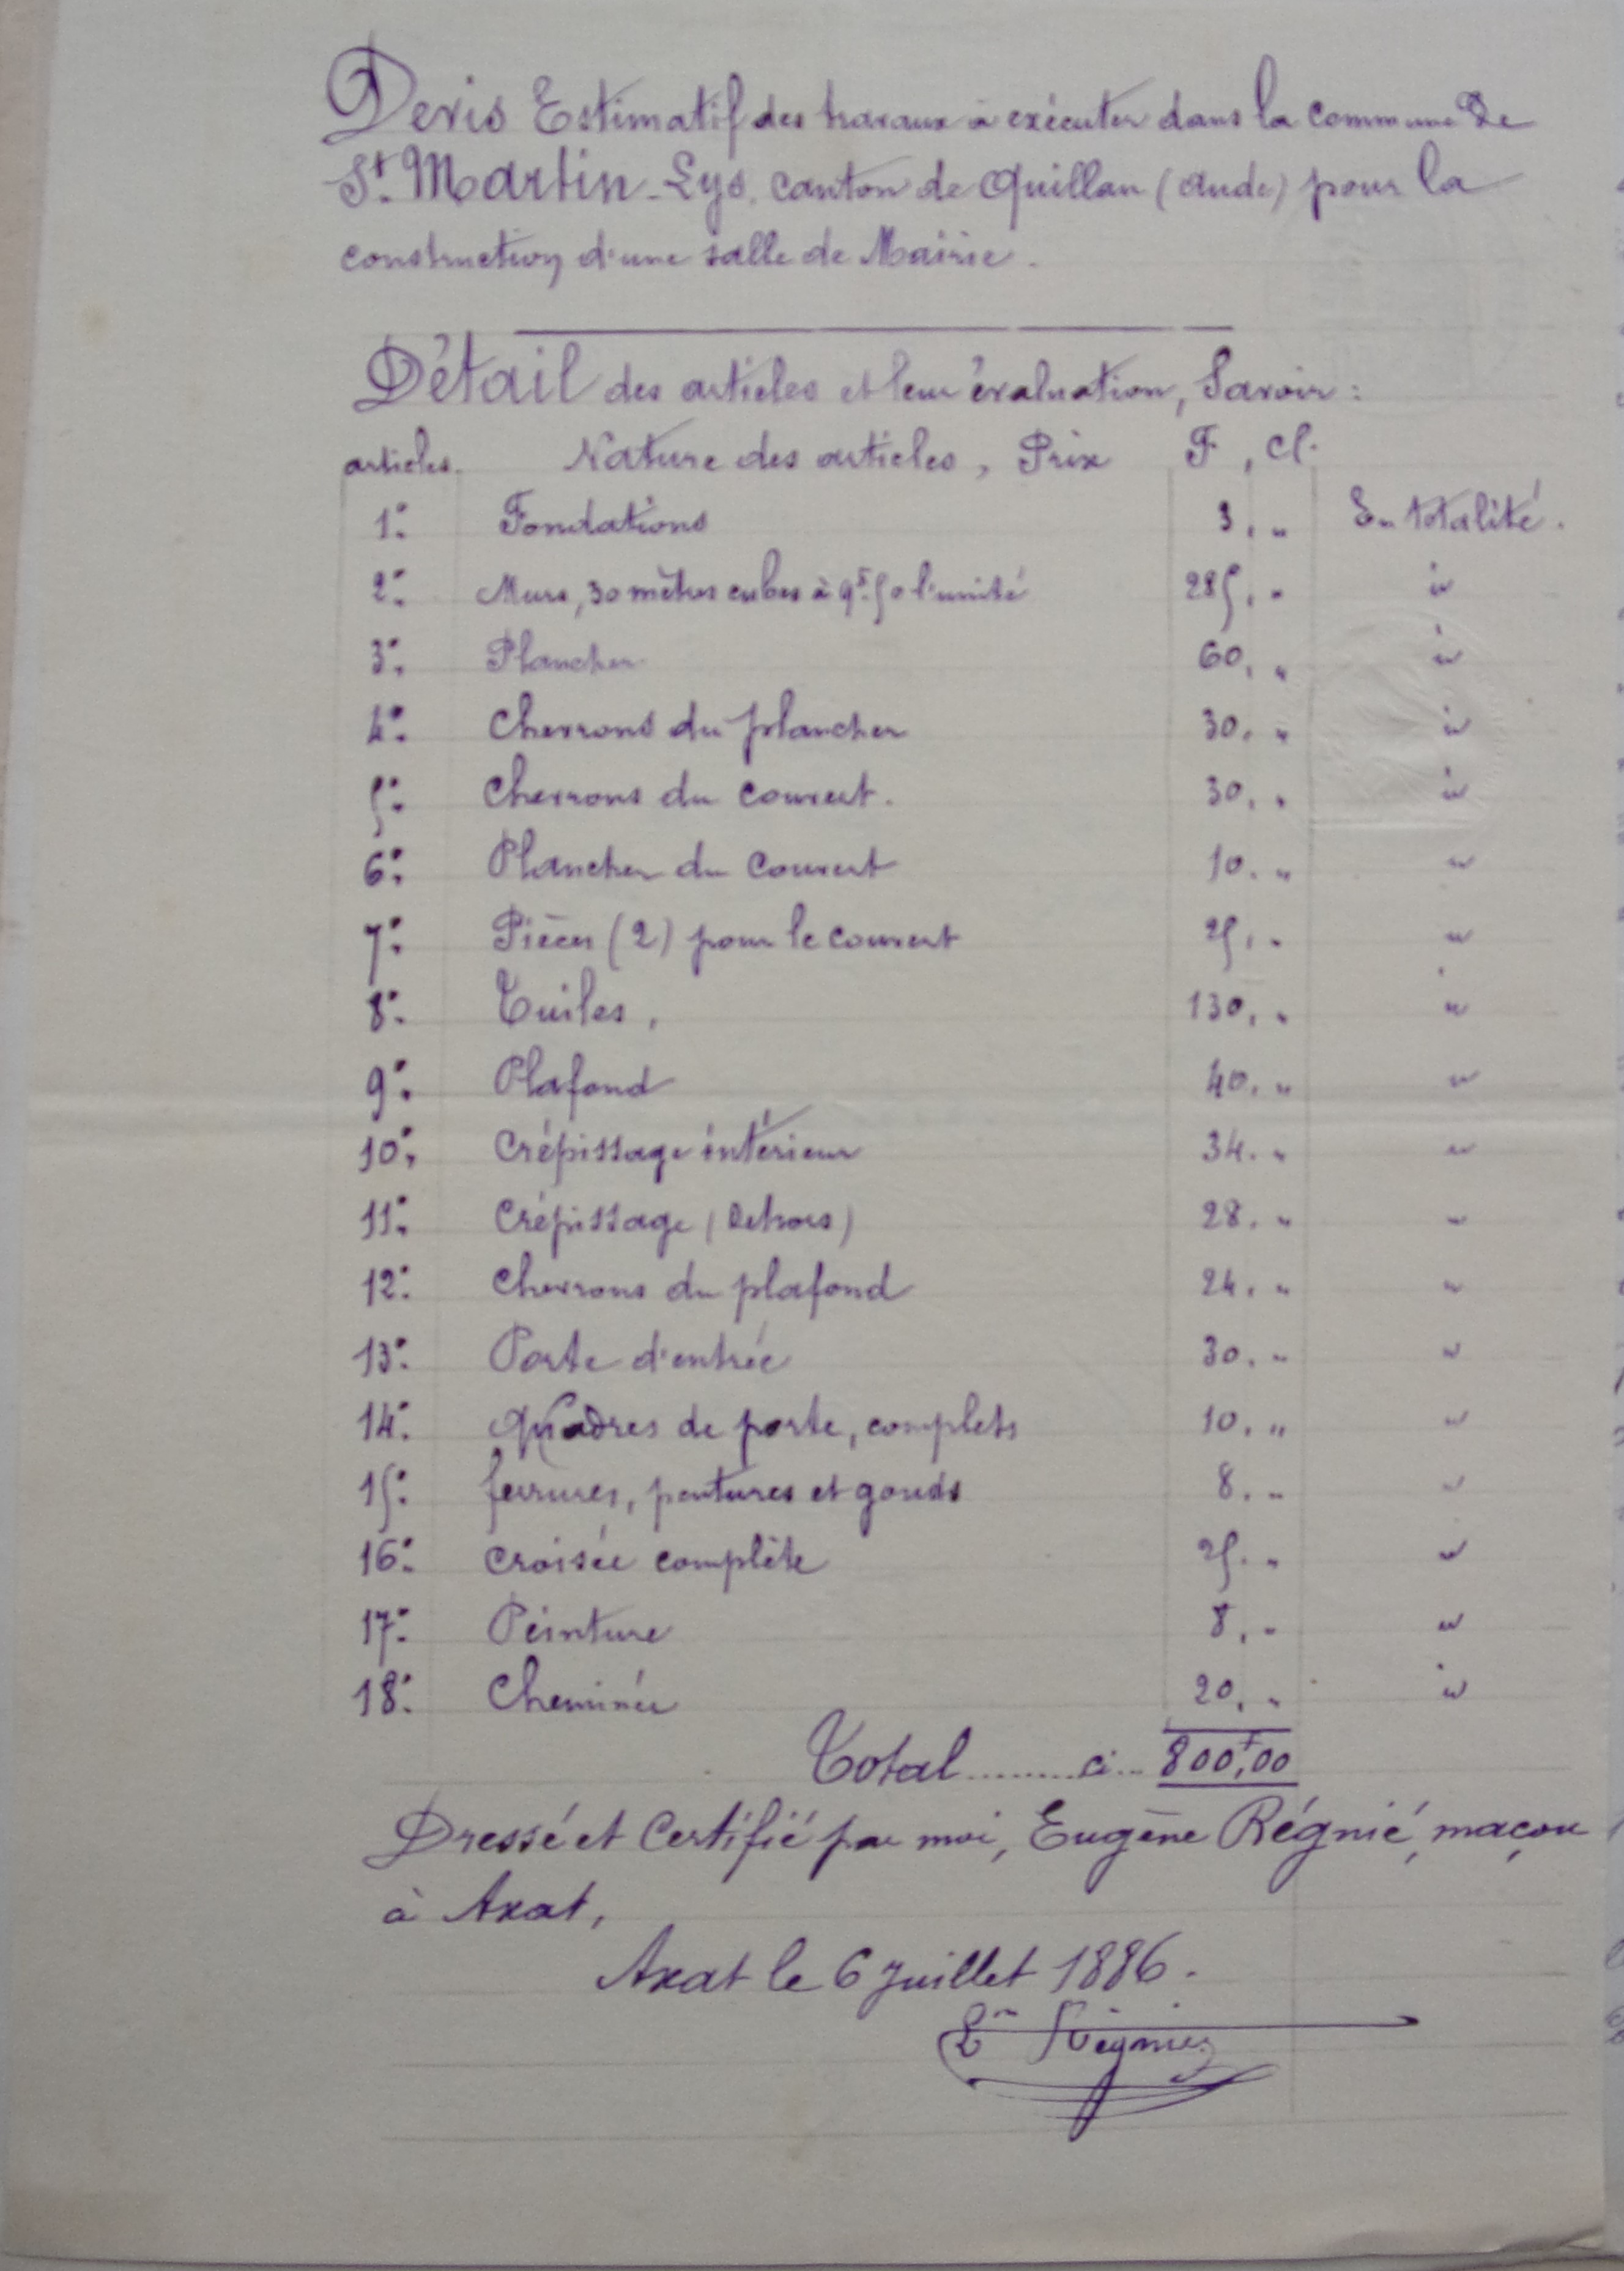 Devis Estimatif des travaux à exécuter dans la commune De
St. Martin-Lys, canton de Quillan (Aude) pour la
construction d'une salle de Mairie.
Détail des articles et leur évaluation, Savoir :
articles. Nature des articles, Prix F, Cl.
1º. Fondations 3, " En totalité.
2º. Murs, 30 mètres cubes à 9F.50 l'unité 285, " id
3º. Plancher 60, " id
4º. Chevrons du plancher 30, " id
5º. Chevrons du couvert. 30, " id
6º. Plancher du Couvert 10. " "
7º. Pièces (2) pour le couvert 25, " "
8º. Tuiles, 130, " "
9º. Plafond 40, " "
10º. Crépissage intérieur 34. " "
11º. Crépissage (Dehors) 28. " "
12º. Chevrons du plafond 24. " "
13º. Porte d'entrée 30. " "
14º. Quadres de porte, complets 10, " "
15º. ferrures, pentures et gonds 8. " "
16º. Croisée complète 25. " "
17º. Peinture 8, " "
18º. Cheminée 20, " id
Total.........ci... 800F,00
Dressé et Certifié par moi, Eugène Régnié, maçon
à Axat,
Axat le 6 Juillet 1886.
En Régnier